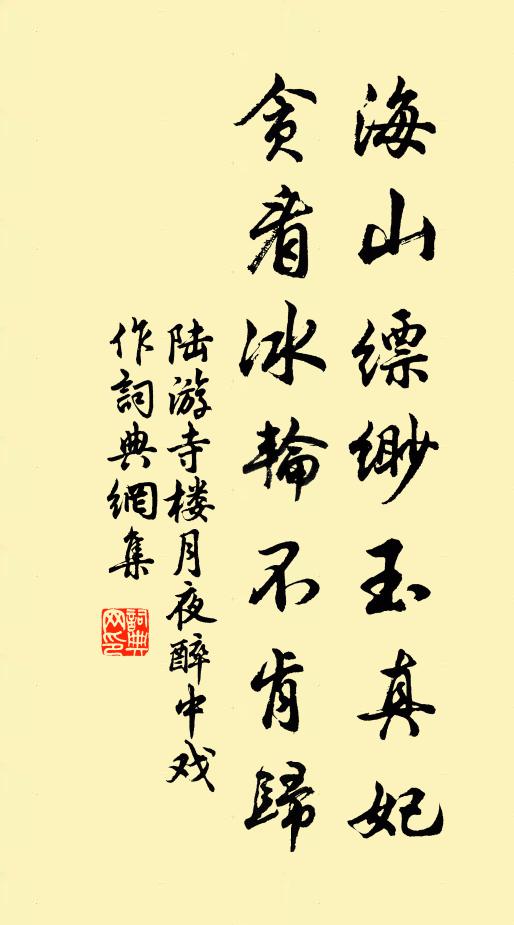 海山缥缈玉真妃
贪看冰輪不肯歸
陆游寺楼月夜醉中戏
作詞典網集
詞典网印